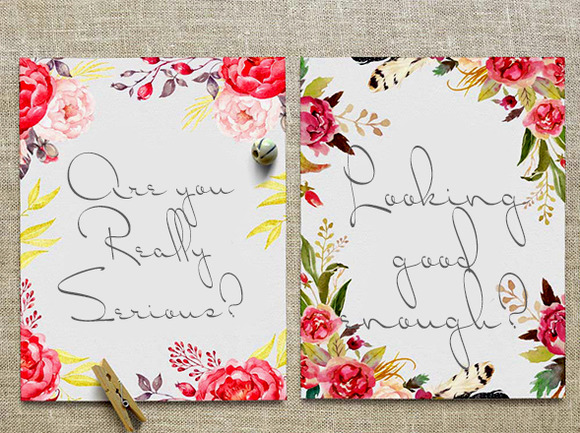 Are you
Really
Serious?
Looking
good
enough?